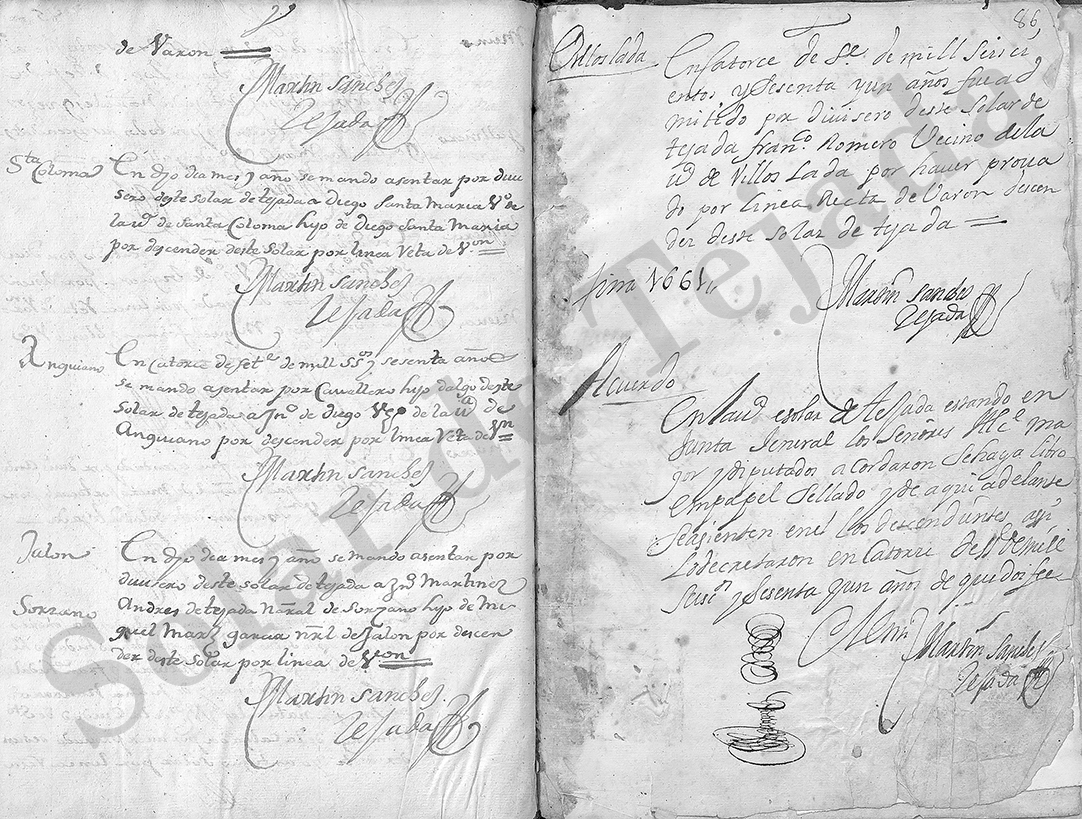 de Varon
Martin Sanches
Tejada
Sta Coloma
En dho dia mes y año se mando asentar por divi
sero deste solar de tejada a Diego Santa Maria Vº de
la vª de Santa Coloma hijo de Diego Santa Maria
por descender deste Solar por linea Reta de Von
Martin Sanches
Tejada
Anguiano
En Catorce de Setre de mill SSos y sesenta años
se mando asentar por Cavallero hijo dalgo deste
Solar de tejada a Juº de Diego Vº de la vª de
Anguiano por descender por linea Reta de Von
Martin Sanches
Tejada
Jalon
En dho dia mes y año se mando asentar por
divisero deste solar de tejada a Martinez
Sorzano
Andres de tejada Natural de Sorzano hijo de mi
guel Marz garcia nral de Jalon por descen
der deste Solar por linea de Von
Martin Sanches
Tejada
86
Villoslada
En Catorce de Se de mill seisci
entos y Sesenta y un años fue ad
mitido por divisero deste Solar de
tejada Franco Romero Vecino de la
vª de Villoslada por haver prova
do por linea Recta de Varon decen
der deste Solar de tejada
1661
Martin Sanches
Tejada
Acuerdo
En la vª e solar de tejada estando en
Junta Jeneral los Señores Alce ma
yor y Diputados acordaron Se haga libro
en papel Sellado y de aqui adelante
se asienten en el los decendientes assi
lo decretaron en Catorce de Se de mill
Seisos y Sesenta y un años de que doi fee
Martin Sanches
Tejada
Solar de Tejada